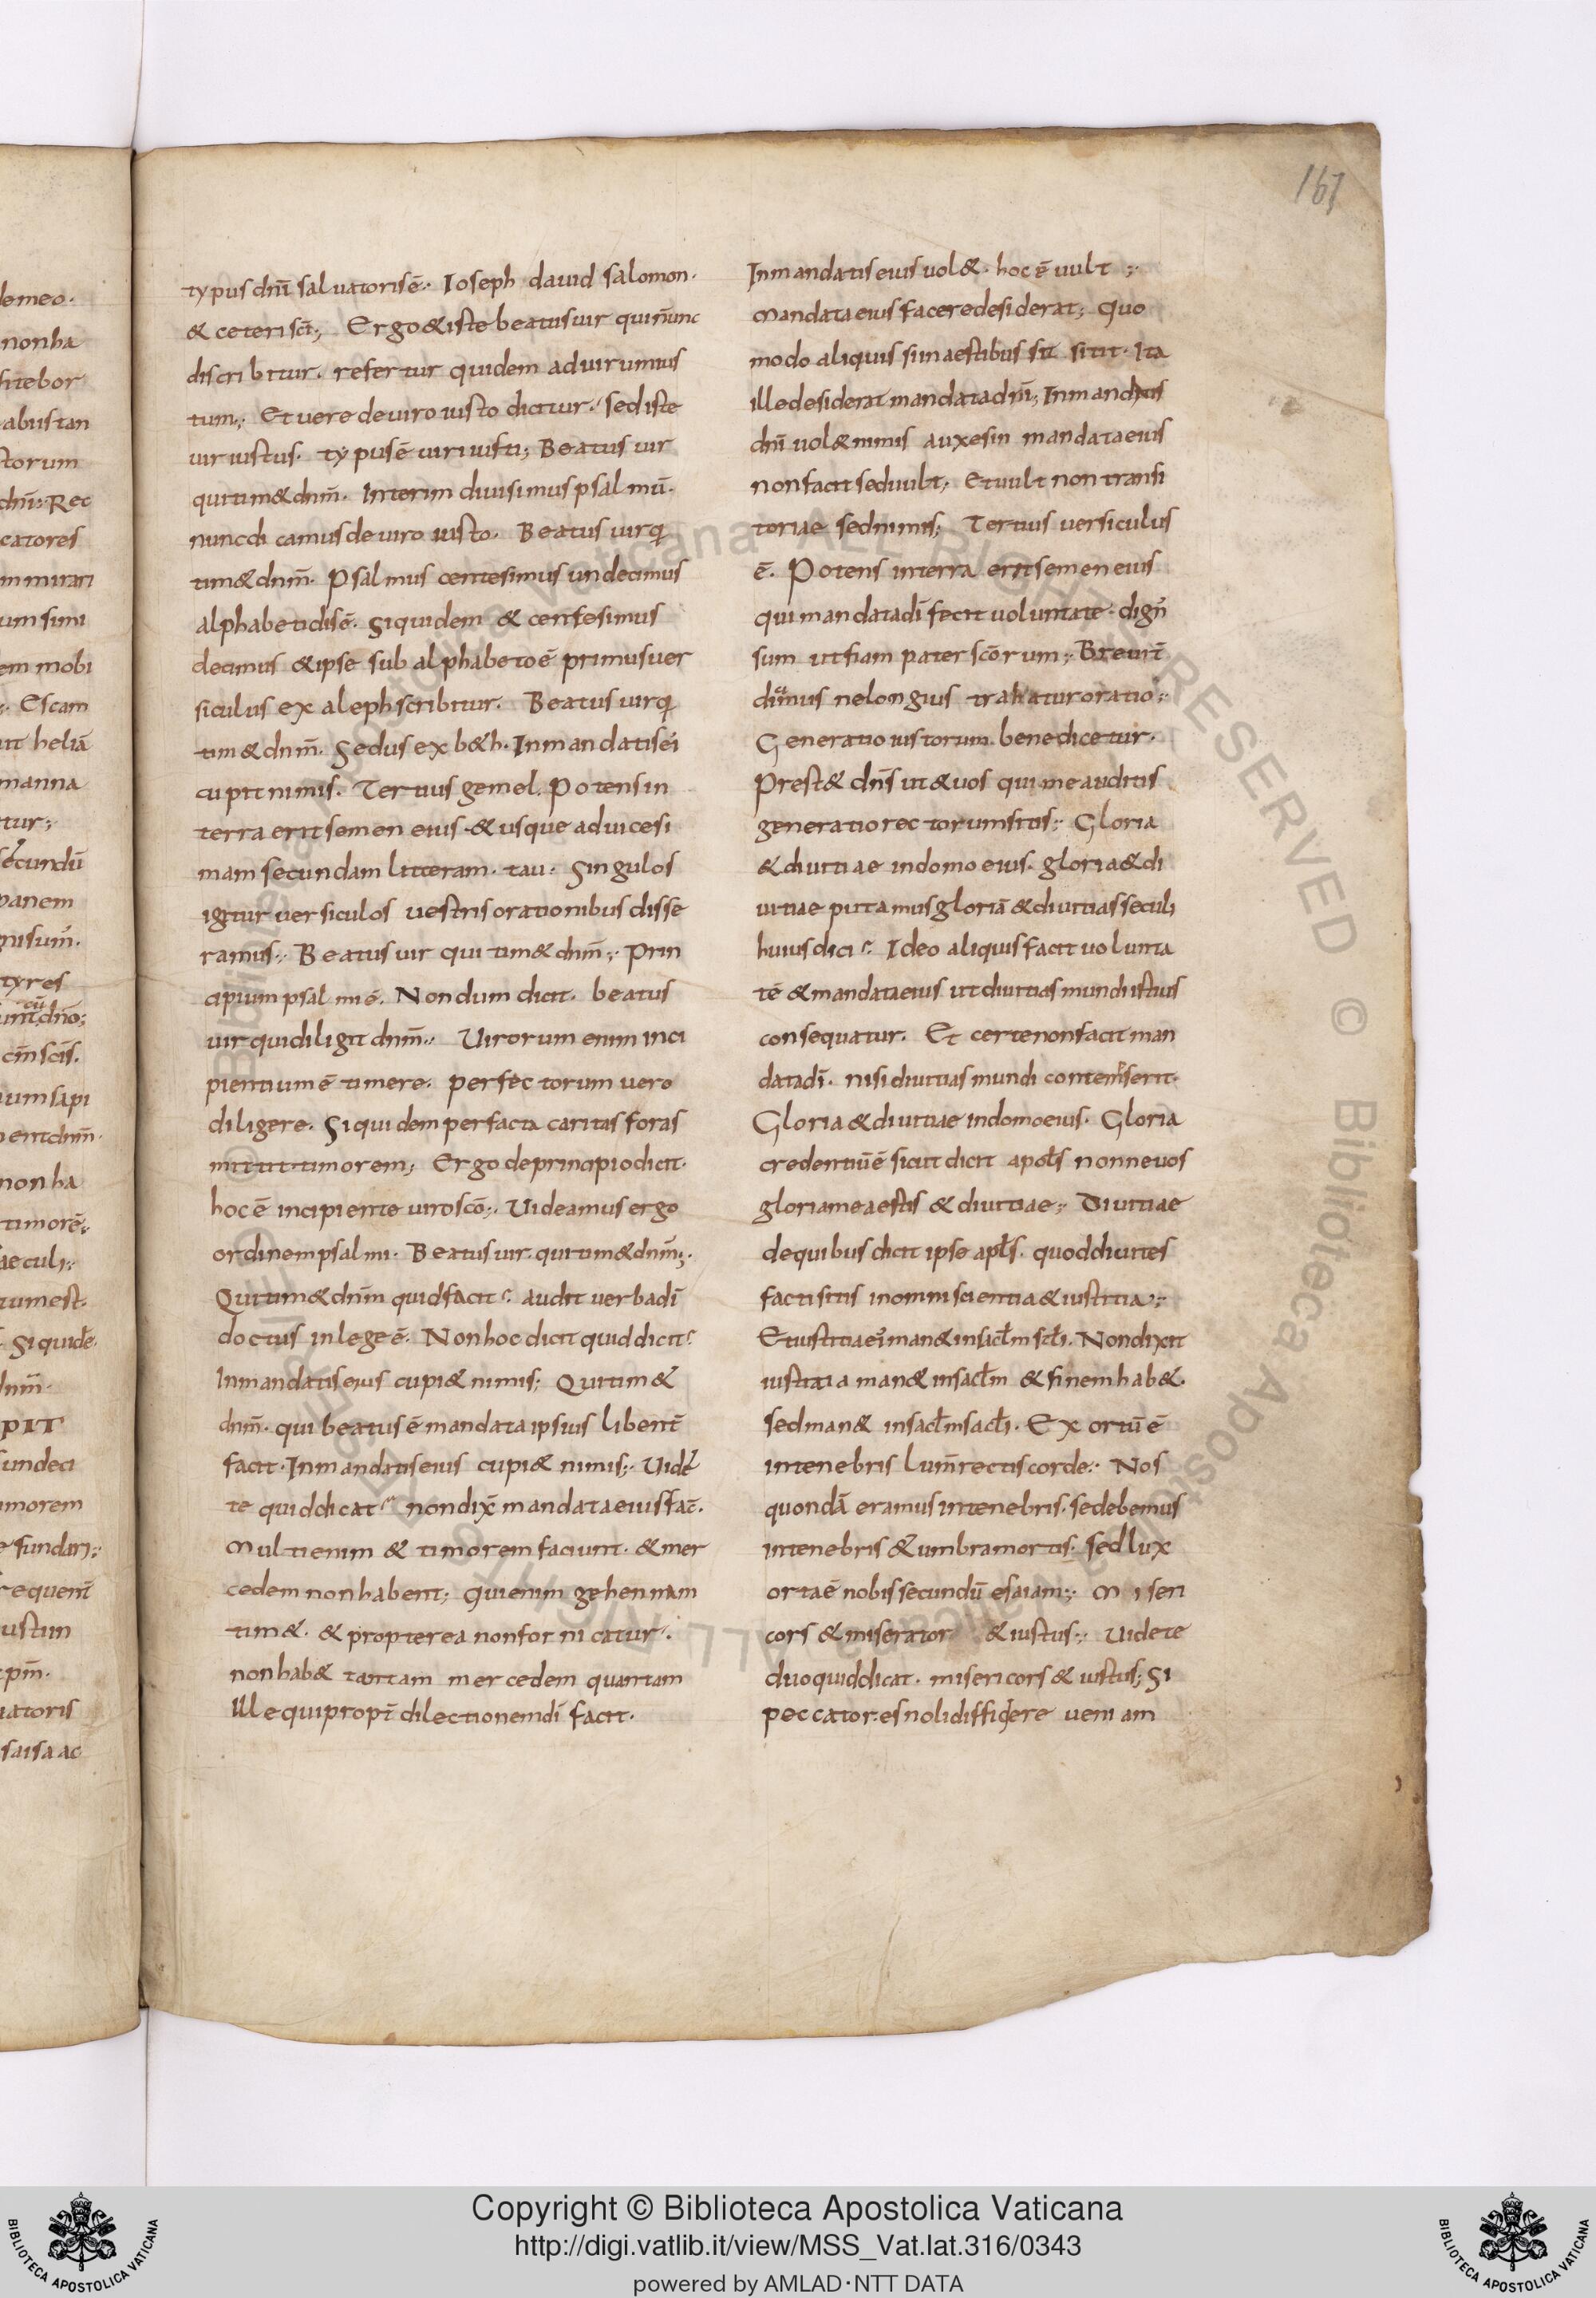 167
typus dnī saluatoris ē. Ioseph dauid salomon.
& ceteri scī; Ergo & iste beatus uir qui n̄unc
discribitur. refertur quidem ad uirum ius
tum; Et uere de uiro iusto dicitur. sed iste
uir iustus. typus ē uiri iusti; Beatus uir
qui tim& dnm̄. Interim diuisimus psalmū.
nunc dicamus de uiro iusto. Beatus uir q
tim& dnm̄. Psalmus centesimus undecimus
alphabeti dis ē. Siquidem & centesimus
decimus & ipse sub alphabeto ē primus uer
siculus ex aleph scribitur. Beatus uir q
tim& dnm̄. Sedus ex b&h. In mandatis ei
cupit nimis. Tertius gemel. Potens in
terra erit semen eius & usque ad uicesi
mam secundam litteram. tau. Singulos
igitur uersiculos uestris orationibus disse
ramus; Beatus uir qui tim& dnm̄; Prin
cipium psalmi ē. Nondum dicit. beatus
uir qui diligit dnm̄; Uirorum enim inci
pientium ē timere. perfectorum uero
diligere. Siquidem perfacta caritas foras
mittit timorem; Ergo de principio dicit.
hoc ē incipiente uiro scō; Uideamus ergo
ordinem psalmi. Beatus uir. qui tim& dnm̄;
Qui tim& dnm̄ quid facit? audit uerba dī
doctus in lege ē. Non hoc dicit quid dicit?
In mandatis eius cupi& nimis; Qui tim&
dnm̄. qui beatus ē mandata ipsius libent̄
facit. In mandatis eius cupi& nimis; Uide
te quid dicat? non dix̄ mandata eius fac̄.
Multi enim & timorem faciunt. & mer
cedem non habent; Qui enim gehennam
tim&. & propterea non fornicatur.
non hab& tantam mercedem quantam
Ille qui propt̄ dilectionem dī facit.
In mandatis eius uol&. hoc ē uult;
Mandata eius facere desiderat; Quo
modo aliquis si in aestibus sit sitit. Ita
ille desiderat mandata dnī; In mandatis
dnī uol& nimis auxesin mandata eius
non facit sed uult; Et uult non transi
toriae sed nimis; Tertius uersiculus
ē. Potens in terra erit semen eius
qui mandata dī fecit uoluntate. dign
sum ut fiam pater scōrum; Breuit̄
dicimus ne longius trahatur oratio;
Generatio iustorum benedicetur.
Prest& dns̄ ut & uos qui me auditis
generatio rectorum sitis; Gloria
& diuitiae in domo eius. gloria & di
uitiae putamus gloriā & diuitias seculi
huius dici? Ideo aliquis facit uolunta
tē & mandata eius ut diuitias mundi istius
consequatur. Et certe non facit man
data dī. nisi diuitias mundi contemserit.
Gloria & diuitiae in domo eius. Gloria
credentiū ē sicut dicit apots nonne uos
gloria mea estis & diuitiae; Diuitiae
de quibus dicit ipse apts. quod diuites
facti sitis in omni scientia & iustitia;
Et iustitia ei man& in sactm scti. Non dixit
iustitia man& in sactm & finem hab&.
sed man& in sactm sacti. Ex ortū ē
in tenebris lum̄ rectis corde; Nos
quondā eramus in tenebris. sedebemus
in tenebris & umbra mortis. sed lux
orta ē nobis secundū esaiam; Miseri
cors & miserator & iustus; Uidete
duo quid dicat. misericors & iustus; Si
peccator es noli diffidere ueniam
Copyright © Biblioteca Apostolica Vaticana
http://digi.vatlib.it/view/MSS_Vat.lat.316/0343
powered by AMLAD·NTT DATA